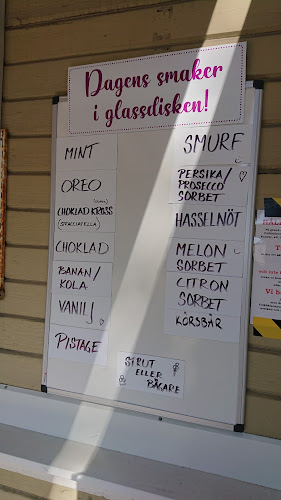 Dagens smaker
i glassdisken!
MINT
OREO
CHOKLAD KROSS
(STACCIATELLA)
CHOKLAD
BANAN/
KOLA
VANILJ
PISTAGE
SMURF
PERSIKA/
PROSECCO
SORBET
HASSELNÖT
MELON
SORBET
CITRON
SORBET
KÖRSBÄR
STRUT
ELLER
BÄGARE